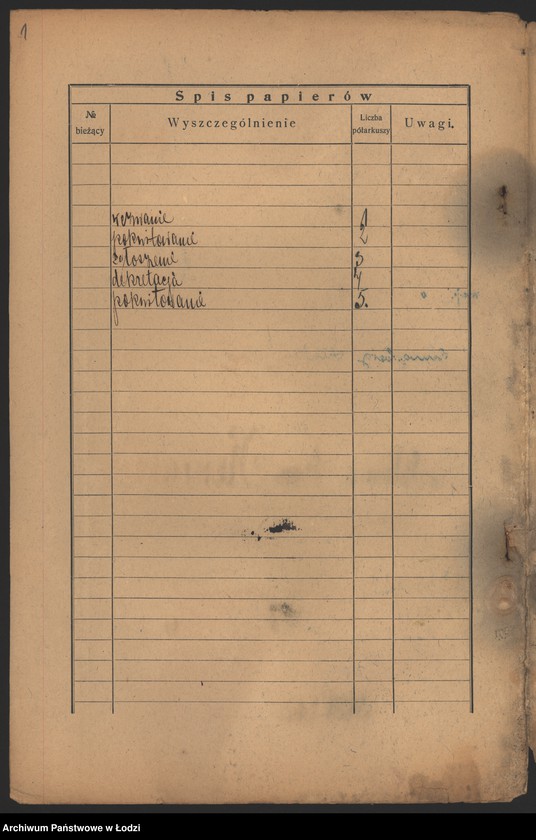 1
Spis papierów
№ bieżący
Wyszczególnienie
Liczba półarkuszy
Uwagi.
wezwanie 1
pokwitowanie 2
zgłoszenie 3
dekretacja 4
pokwitowanie 5.
Archiwum Państwowe w Łodzi